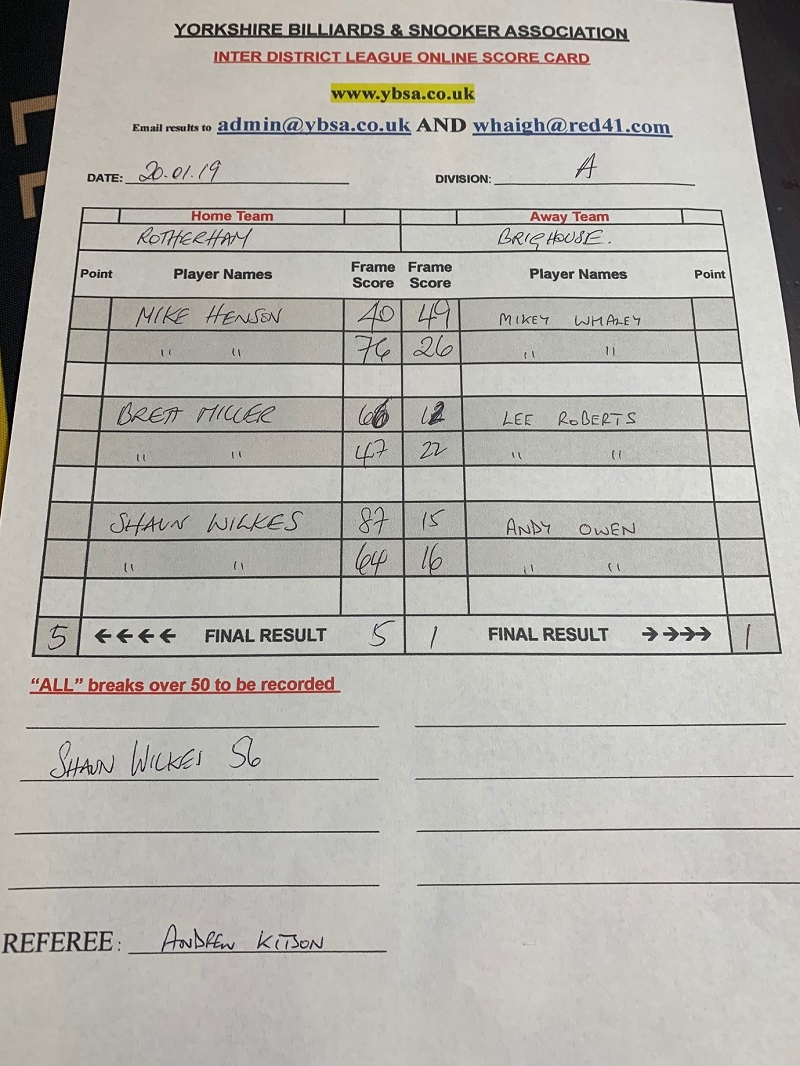 YORKSHIRE BILLIARDS & SNOOKER ASSOCIATION
INTER DISTRICT LEAGUE ONLINE SCORE CARD
www.ybsa.co.uk
Email results to admin@ybsa.co.uk AND whaigh@red41.com
DATE: 20.01.19 DIVISION: A
Home Team Away Team
ROTHERHAM BRIGHOUSE.
Point Player Names Frame Score Frame Score Player Names Point
MIKE HENSON 40 49 MIKEY WHALEY
" " 76 26 " "
BRETT MILLER 12 LEE ROBERTS
" " 47 22 " "
SHAUN WILKES 87 15 ANDY OWEN
" " 64 16 " "
5 ←←←← FINAL RESULT 5 1 FINAL RESULT →→→→ 1
“ALL” breaks over 50 to be recorded
SHAUN WILKES 56
REFEREE: ANDREW KITSON